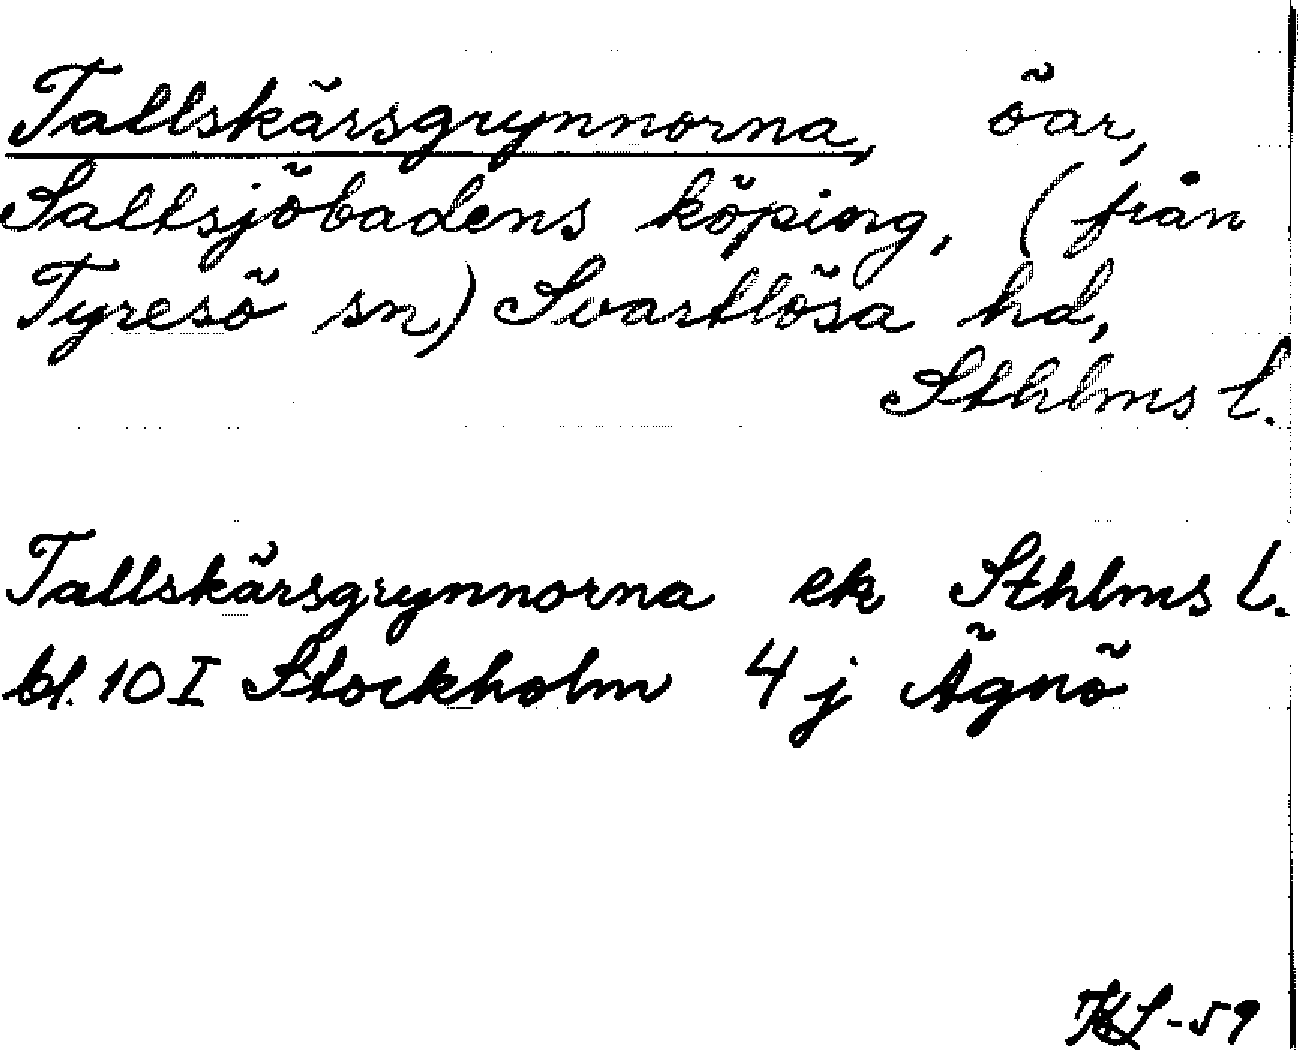 Tallskärsgrynnorna, öar,
Saltsjöbadens köping, (från
Tyresö sn) Svartlösa hd,
Sthlms l.
Tallskärsgrynnorna ek Sthlms l.
bl. 10 I Stockholm 4 j Ägnö
KL-59